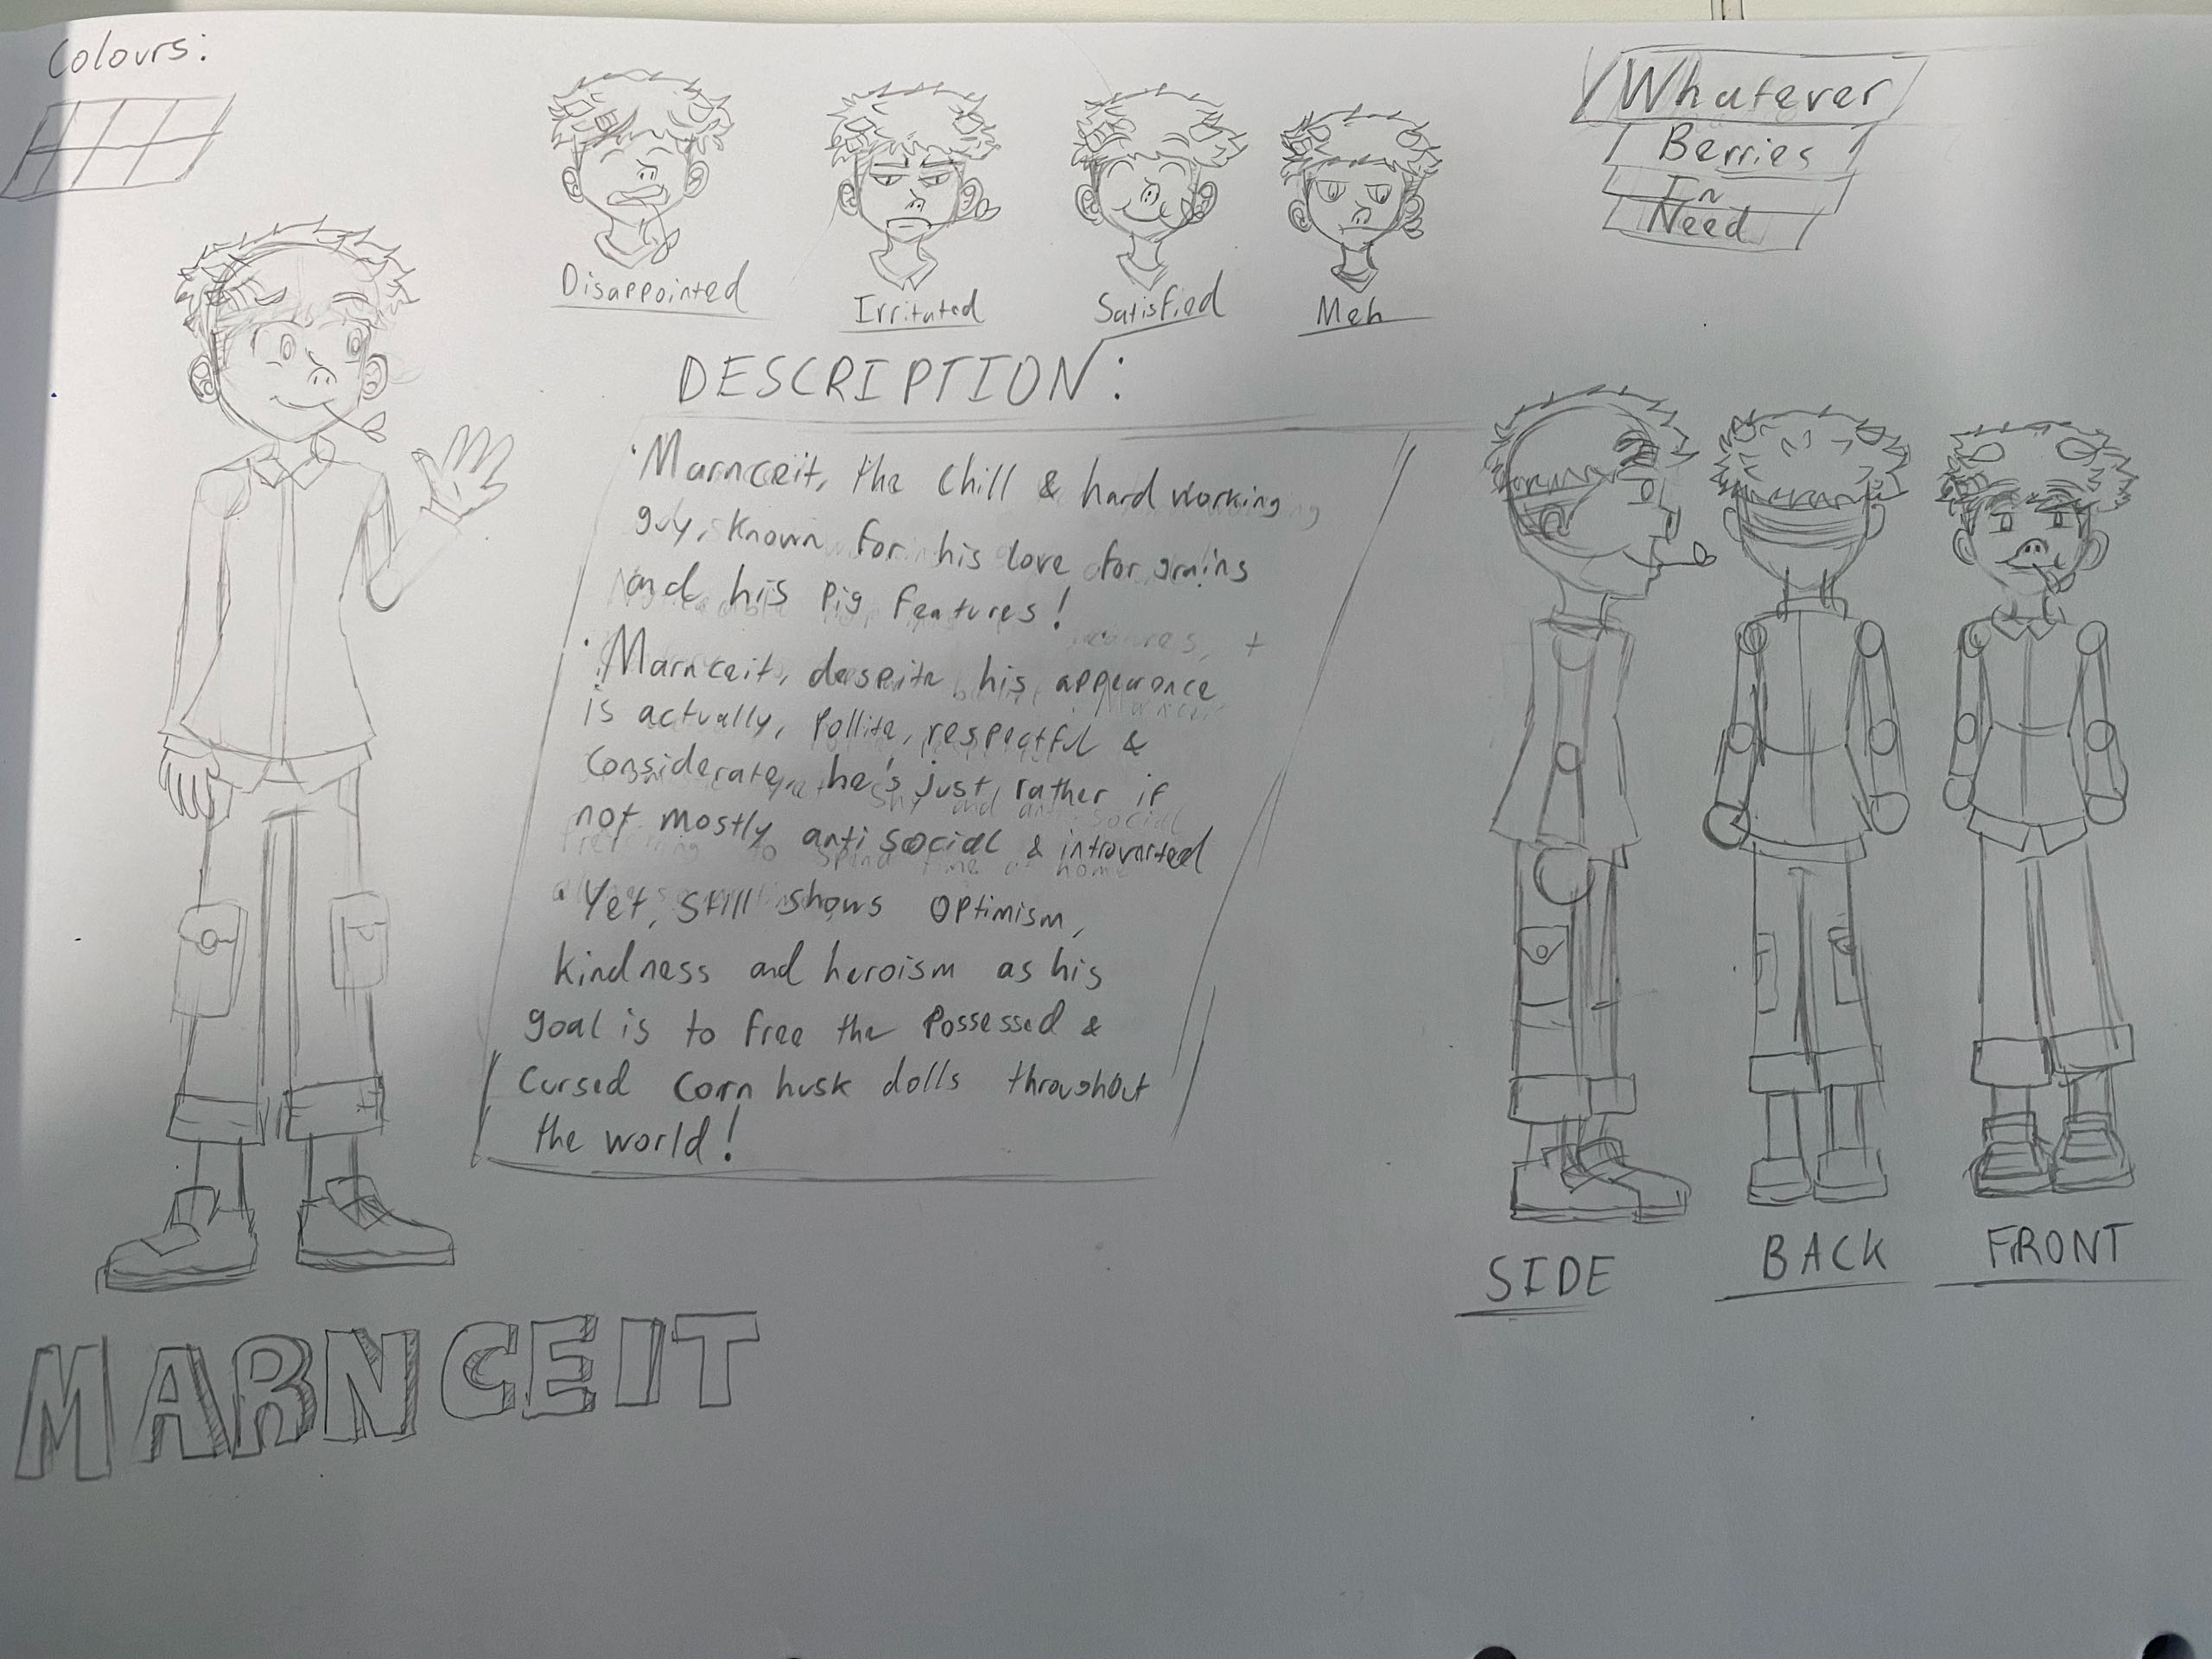 Colours:
Whatever
Berries
In
Need
Disappointed
Irritated
Satisfied
Meh
DESCRIPTION:
• Marnceit, the Chill & hard working
guy, known for his love for grains
and his pig features!
• Marnceit, despite his appearance
is actually, pollite, respectful &
considerate, he's just rather if
not mostly anti social & introverted
• Yet, still shows optimism,
kindness and heroism as his
goal is to free the possessed &
cursed corn husk dolls throughout
the world!
SIDE
BACK
FRONT
MARNCEIT